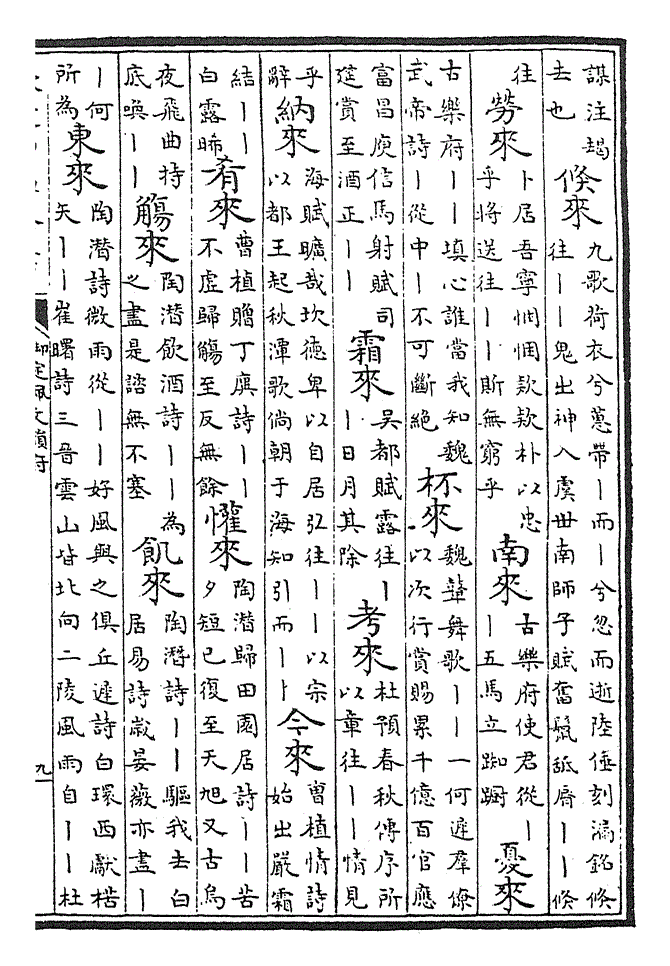 謀注朅
去也
倏來
九歌荷衣兮蕙帶丨而丨兮忽而逝陸倕刻漏銘倏
往丨丨鬼出神入虞世南師子賦奮鬛舐脣丨丨倏
往
勞來
卜居吾寧悃悃款款朴以忠
乎將送往丨丨斯無窮乎
南來
古樂府使君從丨
丨五馬立踟躕
憂來
古樂府丨丨填心誰當我知魏
武帝詩丨從中丨不可斷絕
杯來
魏鼙舞歌丨丨一何遲羣僚
以次行賞賜累千億百官應
富昌庾信馬射賦司
筵賞至酒正丨丨
霜來
吳都賦露往丨
丨日月其除
考來
杜預春秋傳序所
以章往丨丨情見
乎
辭
納來
海賦曠哉坎德卑以自居弘往丨丨以宗
以都王起秋潭歌倘朝于海知引而丨丨
今來
曹植情詩
始出嚴霜
結丨丨
白露晞
肴來
曹植贈丁廙詩丨丨
不虛歸觴至反無餘
懽來
陶潛歸田園居詩丨丨苦
夕短已復至天旭又古烏
夜飛曲持
底喚丨丨
觴來
陶潛飲酒詩丨丨為
之盡是諮無不塞
飢來
陶潛詩丨丨驅我去白
居易詩歲晏薇亦盡丨
丨何
所為
東來
陶潛詩微雨從丨丨好風與之俱丘遲詩白環西獻楛
矢丨丨崔曙詩三晉雲山皆北向二陵風雨自丨丨杜
御定佩文韻府
九